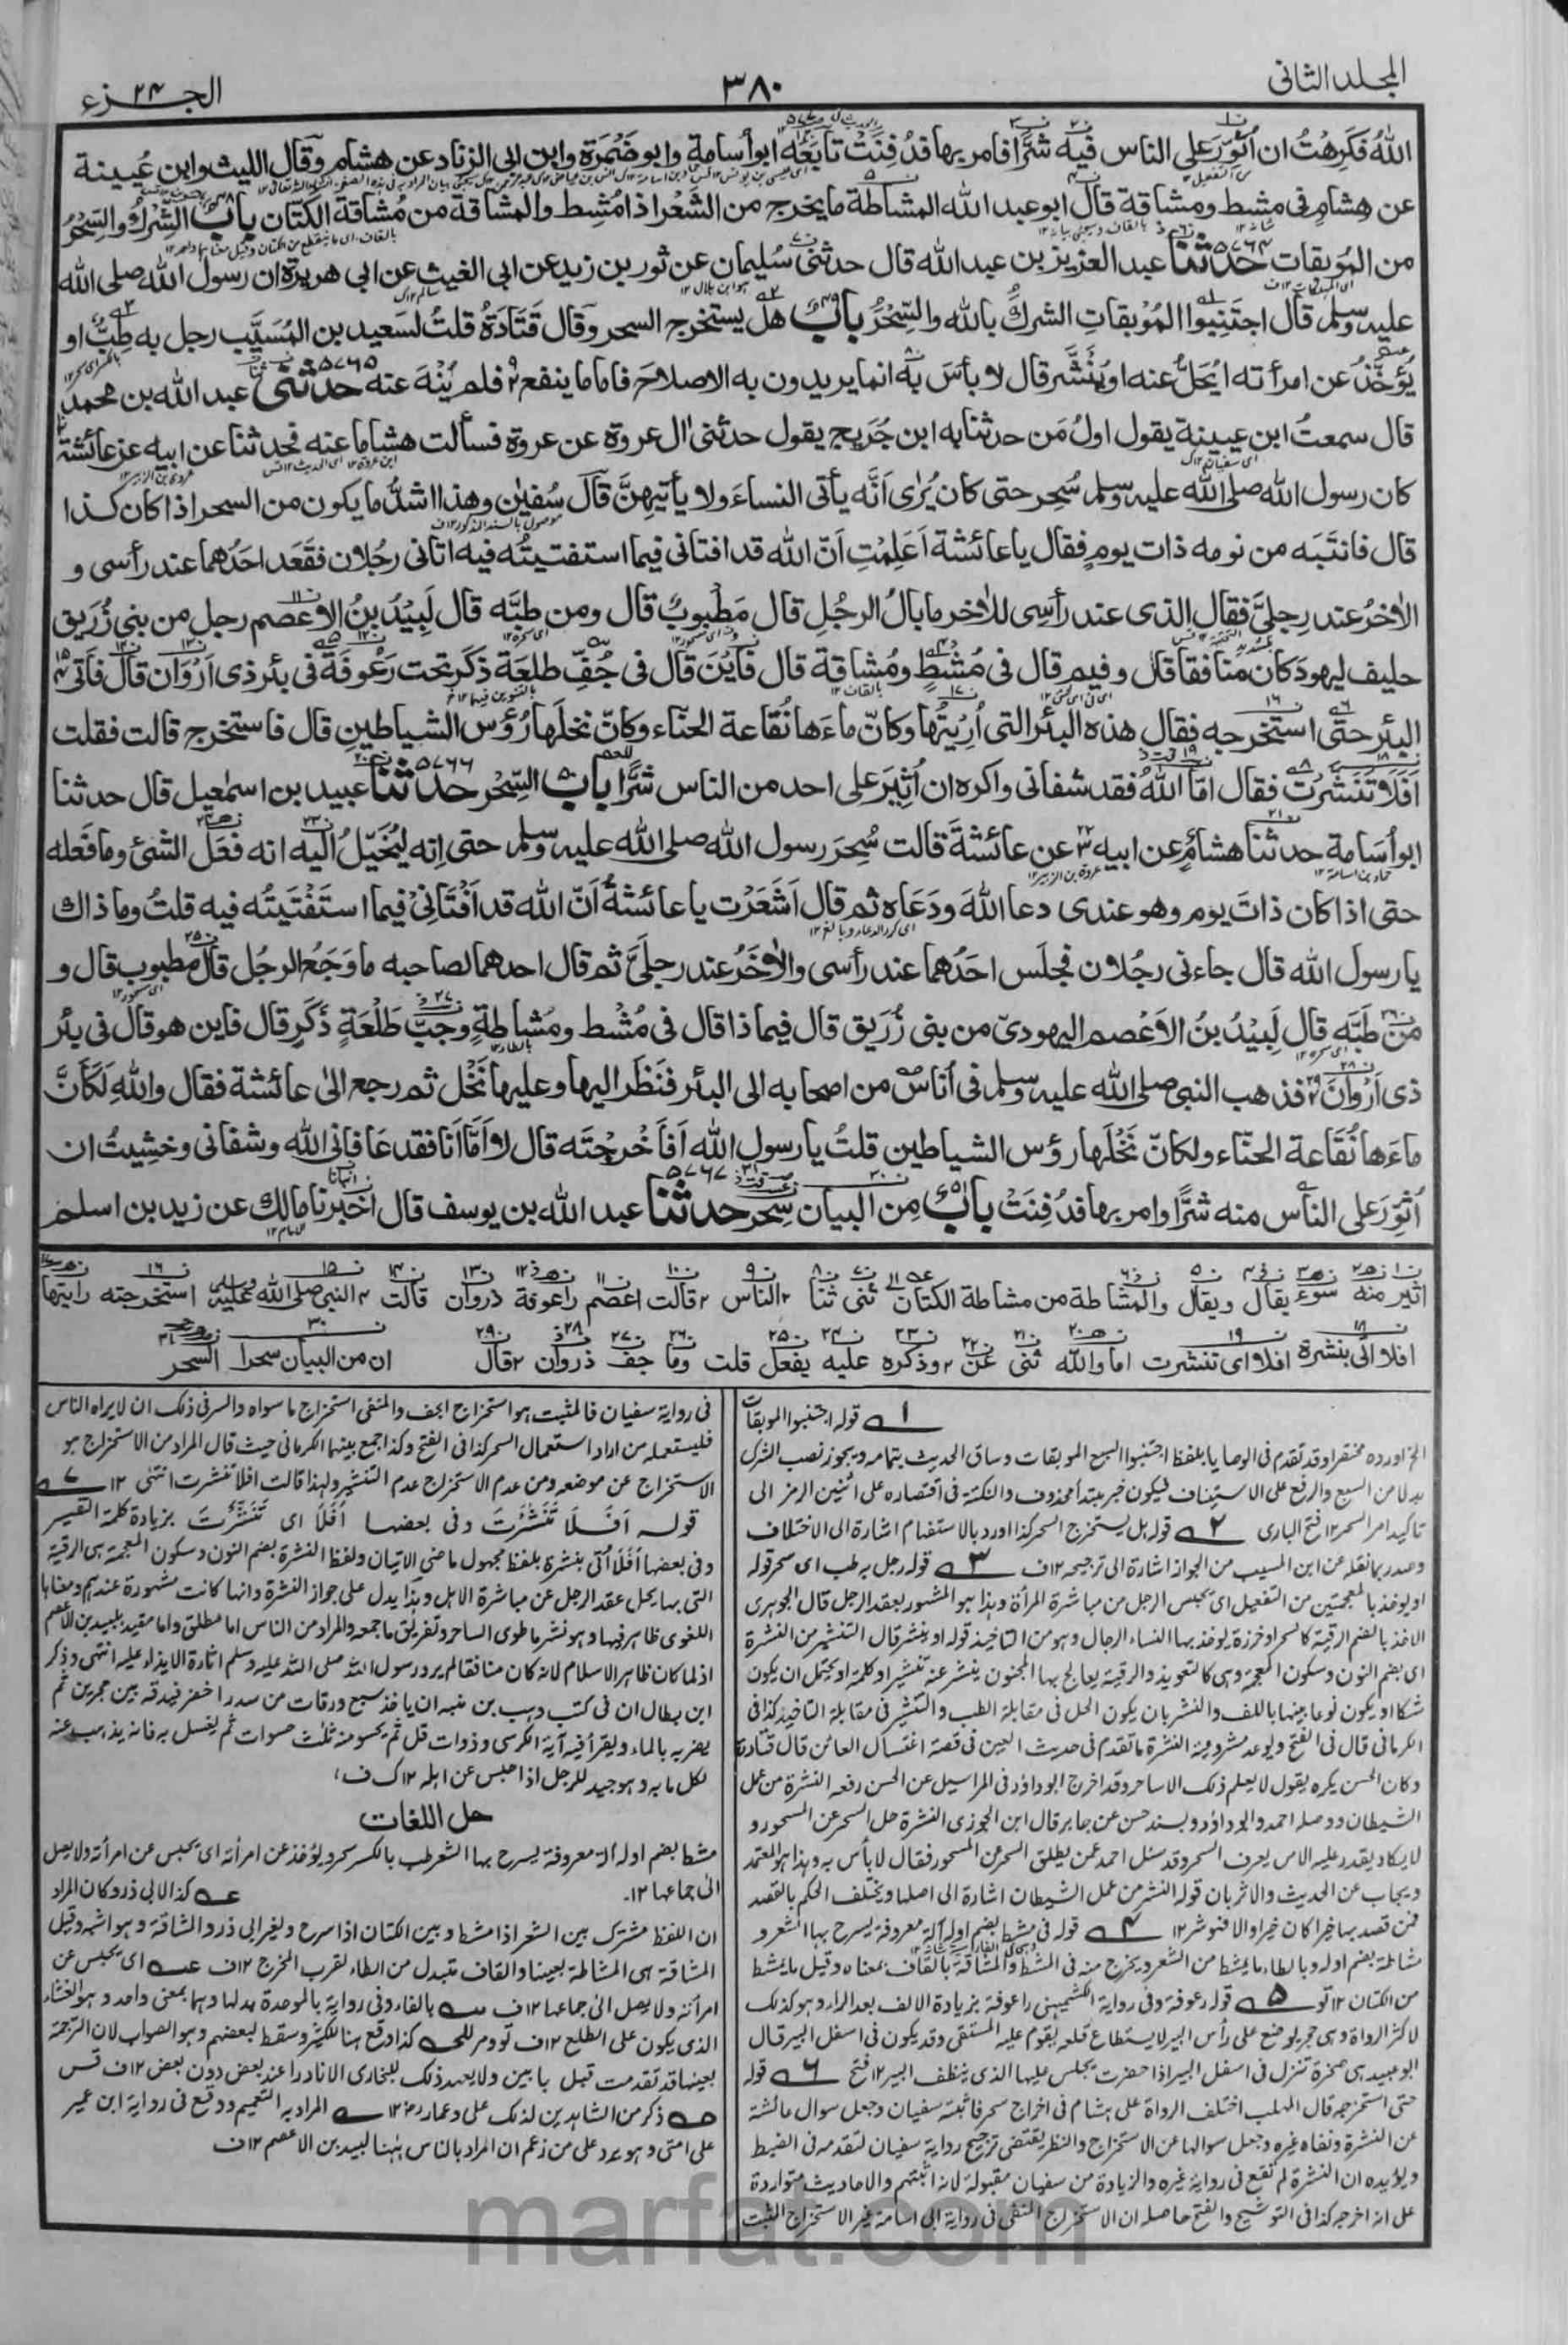 المجلد الثانى
٣٨٠
الجزء ٢٤
اللهُ فَكَرِهْتُ ان اُثَوِّرَ على الناس فيه شَرًّا فامر بها فدُفِنَتْ تابَعَه ابو اُسامة وابو ضَمْرَة وابن ابى الزناد عن هشام وقال الليث وابن عُيينة
عن هشام فى مشط ومشاقة قال ابو عبد الله المشاطة ما يخرج من الشَعْر اذا مُشِط والمشاقة من مُشاقة الكتان باب الشِرْكُ والسِحْرُ
من المُوبقات حدثنا عبد العزيز بن عبد الله قال حدثنى سُليمان عن ثور بن زيد عن ابى الغيث عن ابى هريرة ان رسول الله صلى الله
عليه وسلم قال اجتَنِبوا المُوْبقاتِ الشركُ بالله والسِّحْرُ باب هل يستخرج السحر وقال قَتَادَةُ قلتُ لسَعيد بن المُسَيَّب رجل به طِبٌّ او
يُؤَخَّذُ عن امرأته ايُحَلُّ عنه او يُنَشَّر قال لا بأسَ به انما يريدون به الاصلاحَ فاما ما ينفع فلم يُنْهَ عنه حدثنى عبد الله بن محمد
قال سمعتُ ابن عيينة يقول اولُ مَن حدثنا به ابن جُرَيج يقول حدثنى اٰل عروة عن عروة فسألت هشاما عنه فحدثنا عن ابيه عن عائشة
كان رسول الله صلى الله عليه وسلم سُحِر حتى كان يُرٰى اَنَّه يأتى النساءَ ولا يأتيهِنَّ قال سُفيٰن وهذا اشدُّ ما يكون من السحر اذا كان كذا
قال فانتَبَه من نومه ذات يومٍ فقال يا عائشة اَعَلِمْتِ اَنّ الله قد افتانى فيما استفتيتُه فيه اتانى رجُلان فقَعَد احَدُهما عند رأسى و
الاٰخرُ عند رِجلىَّ فقال الذى عند رأسِى للاٰخر ما بالُ الرجُلِ قال مَطْبوبٌ قال ومن طبَّه قال لَبِيْدُ بنُ الاَعصم رجل من بنى زُرَيق
حليف ليهودَ كان منافقا قال وفيم قال فى مُشطٍ ومُشاقة قال فاَيْنَ قال فى جُفّ طلعَة ذكَر تحت رَعُوفَة فى بئر ذى اَرْوَان قال فأتى
البئر حتى استخرجه فقال هذه البئر التى اُرِيتُها وكانّ ماءَها نُقاعة الحنّاء وكانّ نخلَها رُؤس الشياطين قال فاستخرج قالت فقلت
اَفَلَا تَنَشَّرْت فقال امّا اللهُ فقد شفانى واكره ان اُثِيْرَ على احد من الناس شرًّا باب السِّحْر حدثنا عبيد بن اسمٰعيل قال حدثنا
ابو اُسَامة حدثنا هشامٌ عن ابيه عن عائشةَ قالت سُحِرَ رسول الله صلى الله عليه وسلم حتى اِنه ليُخَيَّلُ اليه انه فعَل الشئ وما فَعله
حتى اذا كان ذاتَ يوم وهو عندى دعا اللهَ ودَعَاه ثم قال اَشَعَرْتِ يا عائشةُ اَنّ الله قد اَفْتَانِىْ فيما استَفْتَيتُه فيه قلتُ وما ذاك
يا رسول الله قال جاءنى رجُلان فجلَس احَدُهما عند رأسى والاٰخَرُ عند رجلىَّ ثم قال احدهما لصاحبه ما وَجَعُ الرجُل قال مطبوب قال و
مَنْ طَبَّه قال لَبِيْدُ بنُ الاَعْصم اليهودىّ من بنى زُرَيق قال فيما ذا قال فى مُشْط ومُشاطةٍ وجُبّ طَلْعَةٍ ذَكَرٍ قال فاين هو قال فى بئر
ذى اَرْوَانَ فذهب النبى صلى الله عليه وسلم فى اُناس من اصحابه الى البئر فنَظَر اليها وعليها نَخْل ثم رجع الىٰ عائشة فقال واللهِ لَكَأنَّ
ماءَها نُقَاعة الحنّاء ولكانّ نَخْلَها رؤس الشياطين قلتُ يا رسول الله اَفاَخْرجْتَه قال لا اَمَّا اَنَا فقد عَافانى الله وشفانى وخشِيتُ ان
اُثَوِّرَ على الناس منه شرًّا وامر بها فدُفِنَتْ باب مِن البيان سِحر حدثنا عبد الله بن يوسف قال اخبرنا مالك عن زيد بن اسلم
اثير منه سوء يقال ويقال والمشاطة من مشاطة الكتان ثنى ثنا الناس قالت اعصم راعوفة ذروان قالت النبى صلى الله عليه وسلم استخرجته رايتها
افلا اتى بنشرة افلا اى تنشرت اما والله ثنى عن وذكره عليه يفعل قلت وما جف ذروان قال ان من البيان سحرا السحر
١ قوله اجتنبوا الموبقات
الخ اورده مختصرا وقد تقدم فى الوصايا بلفظ اجتنبوا السبع الموبقات وساق الحديث بتمامه ويجوز نصب الشرك
بدلا من السبع والرفع على الاستيناف فيكون خبر مبتدأ محذوف والنكتة فى اقتصاره على اثنين الرمز الى
تاكيد امر السحر ١٢ فتح البارى ٢ قوله هل يستخرج السحر كذا اورد بالاستفهام اشارة الى الاختلاف
وصدر بما نقله عن ابن المسيب من الجواز اشارة الى ترجيحه ١٢ف ٣ قوله رجل به طب اى سحر قوله
او يوخذ بالمعجمتين من التفعيل اى يحبس الرجل من مباشرة المرأة وهذا هو المشهور بعقد الرجل قال الجوهرى
الاخذ بالضم الرقية كالسحر او خرزة يوخذ بها النساء الرجال وهو من التاخيذ قوله او ينشر قال التنشير من النشرة
اى بضم النون وسكون المعجمة وهى كالتعويذ والرقية يعالج بها المجنون ينشر عنه تنشيرا وكلمة او يحتمل ان يكون
شكا او يكون نوعا بينهما باللف والنشر بان يكون الحل فى مقابلة الطب والتنشير فى مقابلة التاخيذ كذا فى
الكرمانى قال فى الفتح ويوئد مشروعية النشرة ما تقدم فى حديث العين فى قصة اغتسال العائن قال قتادة
وكان الحسن يكره يقول لا يعلم ذلك الا ساحر وقد اخرج ابو داؤد فى المراسيل عن الحسن رفعه النشرة من عمل
الشيطان ووصله احمد وابو داؤد وبسند حسن عن جابر قال ابن الجوزى النشرة حل السحر عن المسحور و
لا يكاد يقدر عليه الا من يعرف السحر وقد سئل احمد عمن يطلق السحر عن المسحور فقال لا بأس به وهذا هو المعتمد
ويجاب عن الحديث والاثر بان قوله النشر من عمل الشيطان اشارة الى اصلها ويختلف الحكم بالقصد
فمن قصد بها خيرا كان خيرا والا فهو شر ١٢ ٤ قوله فى مشط بضم اوله آلة معروفة يسرح بها الشعر و
مشاطة بضم اوله وبالطاء ما يمشط من الشعر ويخرج منه فى المشط والمشاقة بالقاف بمعناه وقيل ما يمشط
من الكتان ١٢ تو ٥ قوله رعوفة وفى رواية الكشميهنى راعوفة بزيادة الالف بعد الراء وهو كذلك
لاكثر الرواة وهى حجر يوضع على رأس البير لا يستطاع قلعه يقوم عليه المستقى وقد يكون فى اسفل البير قال
ابو عبيد هى صخرة تنزل فى اسفل البير اذا حضرت يجلس عليها الذى ينظف البير ١٢ فتح ٦ قوله
حتى استخرجه قال المهلب اختلف الرواة على هشام فى اخراج سحر فاثبته سفيان وجعل سوال عائشة
عن النشرة ونفاه غيره وجعل سوالها عن الاستخراج والنظر يقتضى ترجيح رواية سفيان لتقدمه فى الضبط
ويؤيده ان النشرة لم تقع فى رواية غيره والزيادة من سفيان مقبولة لانه اثبتهم والاحاديث متواردة
على انه اخرجه كذا فى التوشيح والفتح حاصله ان الاستخراج المنفى فى رواية ابى اسامة غير الاستخراج المثبت
فى رواية سفيان فالمثبت هو استخراج الجف والمنفى استخراج ما سواه والسر فى ذلك ان لا يراه الناس
فليستعمله من اراد استعمال السحر كذا فى الفتح وكذا جمع بينهما الكرمانى حيث قال المراد من الاستخراج هو
الاستخراج عن موضعه ومن عدم الاستخراج عدم التنشير ولهذا قالت افلا تنشرت انتهى ١٢ ٧
قوله اَفَلَا تَنَشَّرْتَ وفى بعضها اَفَلَا اى تَنَشَّرْتَ بزيادة كلمة التفسير
وفى بعضها اَفَلَا اُتى بنشرة بلفظ مجهول ماضى الاتيان ولفظ النشرة بضم النون وسكون المعجمة هى الرقية
التى بها يحل عقد الرجل عن مباشرة الاهل وهذا يدل على جواز النشرة وانها كانت مشهورة عندهم ومعناها
اللغوى ظاهر فيها وهو نشر ما طوى الساحر وتفريق ما جمعه والمراد من الناس اما مطلق واما مقيد بلبيد بن الاعصم
اذ لما كان ظاهر الاسلام لانه كان منافقا لم يرد رسول الله صلى الله عليه وسلم اثارة الايذاء عليه انتهى وذكر
ابن بطال ان فى كتب وهب بن منبه ان ياخذ سبع ورقات من سدر اخضر فيدقه بين حجرين ثم
يضربه بالماء ويقرأ فيه آية الكرسى وذوات قل ثم يحسو منه ثلث حسوات ثم يغسل به فانه يذهب عنه
لكل ما به وهو جيد للرجل اذا حبس عن اهله ١٢ ك ف
حل اللغات
مشط بضم اوله آلة معروفة يسرح بها الشعر طب بالكسر سحر ويؤخذ عن امرأته اى يحبس عن امرأته ولا يصل
الى جماعها ١٢۔
عه كذا لابى ذر وكان المراد
ان اللفظ مشترك بين الشعر اذا مشط وبين الكتان اذا سرح ولغير ابى ذر والمشاقة وهو اشبه وقيل
المشاقة هى المشاطة بعينها والقاف تبدل من الطاء لقرب المخرج ١٢ف عه اى يحبس عن
امرأته ولا يصل الى جماعها ١٢ف سه بالفاء وفى رواية بالموحدة بدلها وهما بمعنى واحد وهو الغشاء
الذى يكون على الطلع ١٢ف تو ومر للحه كذا وقع هنا للكثير وسقط لبعضهم وهو الصواب لان الترجمة
بعينها قد تقدمت قبل بابين ولا يعهد ذلك للبخارى الا نادرا عند بعض دون بعض ١٢ف قس
صه ذكر من الشاهدين لذلك على وعمار رض ١٢ ے المراد به التعميم ووقع فى رواية ابن نمير
على امتى وهو يرد على من زعم ان المراد بالناس ههنا لبيد بن الاعصم ١٢ف
marfat.com